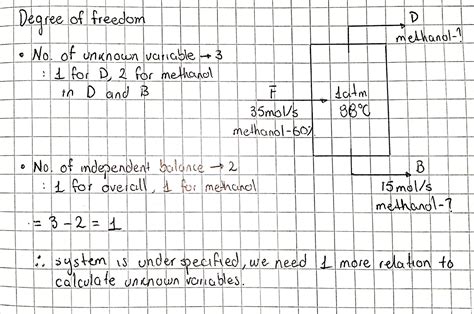 Degree of freedom
• No. of unknown variable → 3
: 1 for D, 2 for methanol
in D and B
D
methanol-?
F
35mol/s
methanol-60%
1atm
98°C
B
15mol/s
methanol-?
• No. of independent balance → 2
: 1 for overall, 1 for methanol
∴ = 3 - 2 = 1
∴ system is under specified, we need 1 more relation to
calculate unknown variables.